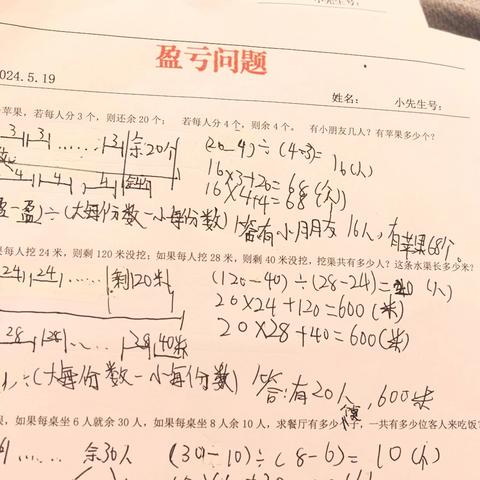 小先生号:
盈亏问题
2024.5.19
姓名: 小先生号:
苹果，若每人分 3 个，则还余 20 个； 若每人分 4 个，则余 4 个。 有小朋友几人？有苹果多少个？
3 3 ...... 3 余20个
(20-4)÷(4-3)= 16(人)
16×3+20=68(个)
4 4 ..... 4 余4个
16×4+4=68(个)
盈-盈)÷(大每份数-小每份数) 答:有小朋友16人,有苹果68个。
果每人挖 24 米，则剩 120 米没挖；如果每人挖 28 米，则剩 40 米没挖，挖渠共有多少人？这条水渠长多少米？
24 24 ...... 剩120米
(120-40)÷(28-24)=20(人)
20×24+120=600(米)
28 28 ..... 28 40米
20×28+40=600(米)
)÷(大每份数-小每份数) 答:有20人,600米
果，如果每桌坐 6 人就余 30 人，如果每桌坐 8 人余 10 人，求餐厅有多少 子，一共有多少位客人来吃饭？
6 ...... 余30人 (30-10)÷(8-6)=10(个)